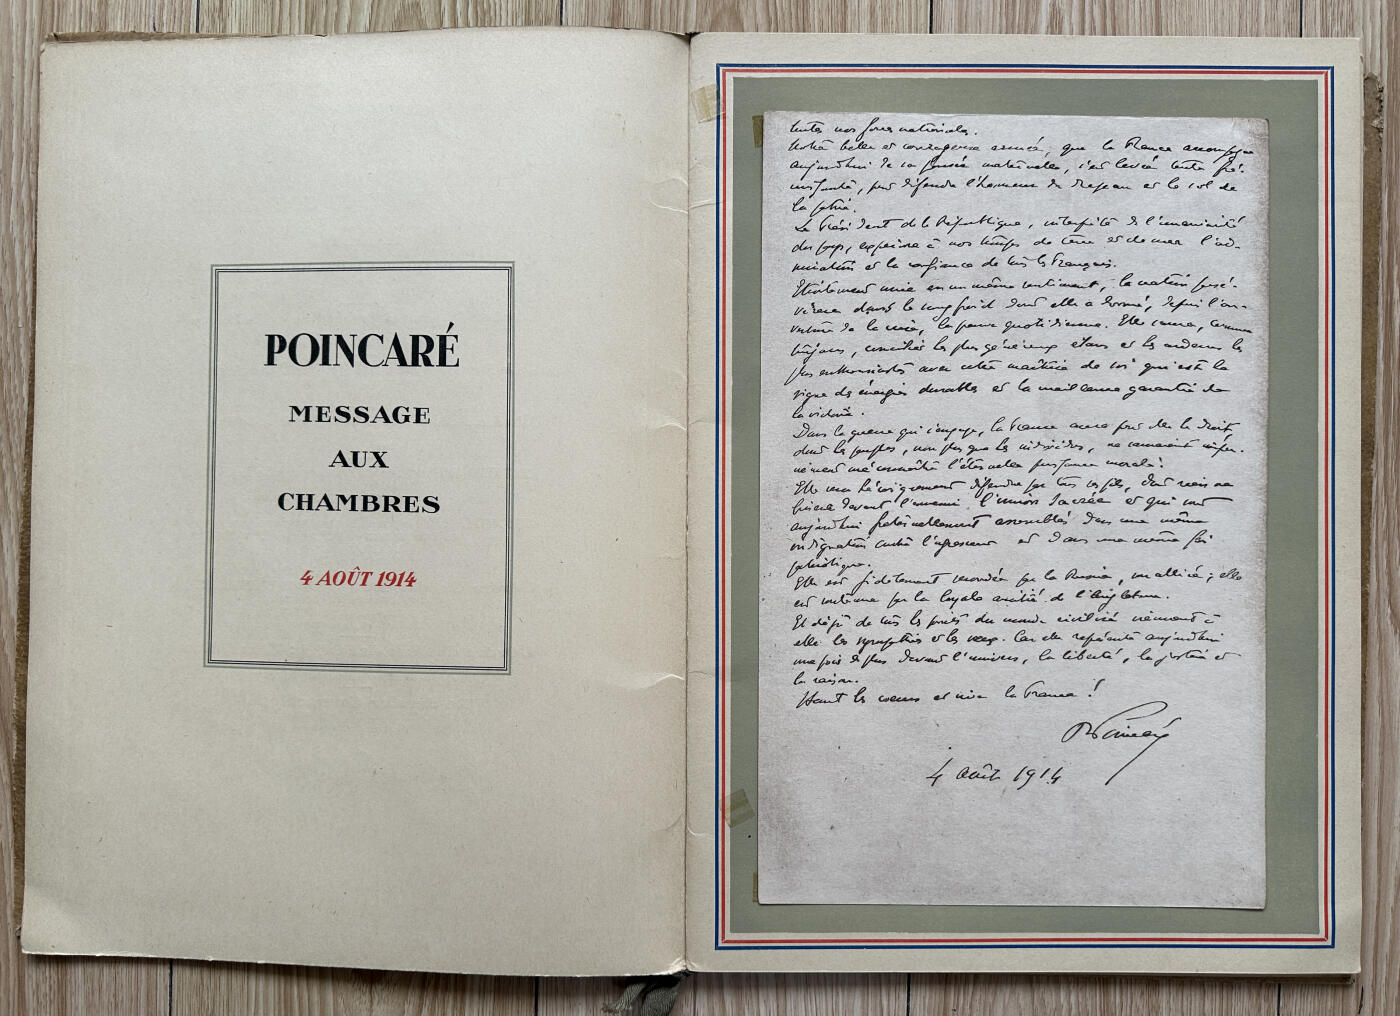 POINCARÉ
MESSAGE
AUX
CHAMBRES
4 AOÛT 1914
toutes nos forces nationales.
Notre belle et courageuse armée, que la France accompagne
aujourd'hui de sa pensée maternelle, s'est levée toute fré-
missante, pour défendre l'honneur du drapeau et le sol de
la patrie.
Le Président de la République, interprète de l'unanimité
du pays, exprime à nos troupes de terre et de mer l'ad-
miration et la confiance de tous les Français.
Etroitement unie en un même sentiment, la nation persé-
vérera dans le sang froid dont elle a donné, depuis l'ou-
verture de la crise, la preuve quotidienne. Elle saura, comme
toujours, concilier les plus généreux élans et les ardeurs les
plus enthousiastes avec cette maîtrise de soi qui est le
signe des énergies durables et la meilleure garantie de
la victoire.
Dans la guerre qui s'engage, la France aura pour elle le droit,
dont les peuples, non plus que les individus, ne sauraient impu-
nément méconnaître l'éternelle puissance morale.
Elle sera héroïquement défendue par tous ses fils, dont rien ne
brisera devant l'ennemi l'union sacrée et qui sont
aujourd'hui fraternellement assemblés dans une même
indignation contre l'agresseur et dans une même foi
patriotique.
Elle est fidèlement secondée par la Russie, son alliée; elle
est soutenue par la loyale amitié de l'Angleterre.
Et déjà de tous les points du monde civilisé viennent à
elle les sympathies et les vœux. Car elle représente aujourd'hui
une fois de plus devant l'univers, la liberté, la justice et
la raison.
Haut les cœurs et vive la France!
R Poincaré
4 août 1914